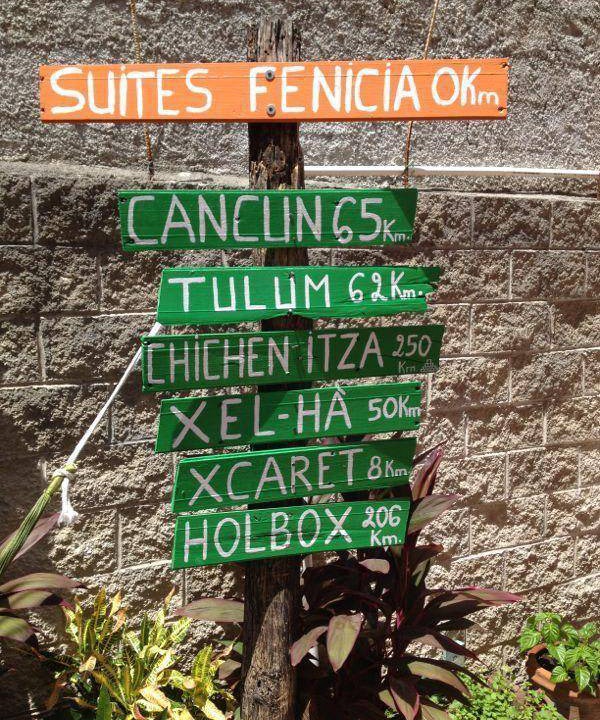 SUITES FENICIA 0Km
CANCUN 65 Km.
TULUM 62Km.
CHICHEN ITZA 250 Km
XEL-HÂ 50Km
XCARET 8Km
HOLBOX 206 Km.